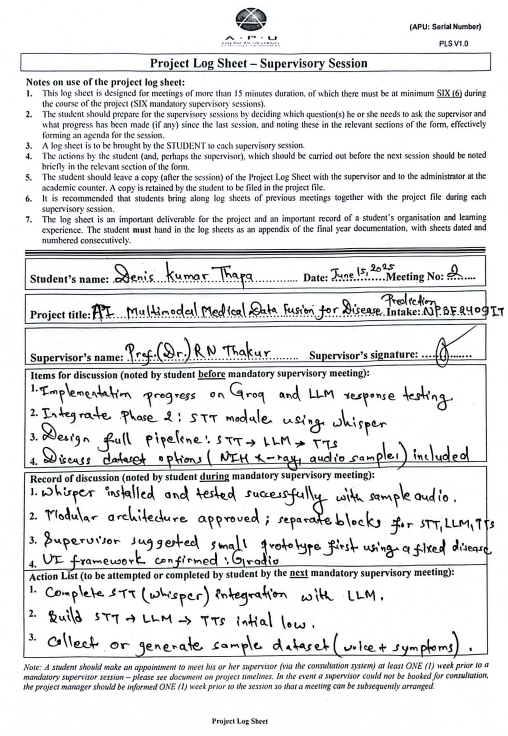 (APU: Serial Number)
A · P · U
PLS V1.0
Project Log Sheet – Supervisory Session
Notes on use of the project log sheet:
1. This log sheet is designed for meetings of more than 15 minutes duration, of which there must be at minimum SIX (6) during
the course of the project (SIX mandatory supervisory sessions).
2. The student should prepare for the supervisory sessions by deciding which question(s) he or she needs to ask the supervisor and
what progress has been made (if any) since the last session, and noting these in the relevant sections of the form, effectively
forming an agenda for the session.
3. A log sheet is to be brought by the STUDENT to each supervisory session.
4. The actions by the student (and, perhaps the supervisor), which should be carried out before the next session should be noted
briefly in the relevant section of the form.
5. The student should leave a copy (after the session) of the Project Log Sheet with the supervisor and to the administrator at the
academic counter. A copy is retained by the student to be filed in the project file.
6. It is recommended that students bring along log sheets of previous meetings together with the project file during each
supervisory session.
7. The log sheet is an important deliverable for the project and an important record of a student's organisation and learning
experience. The student must hand in the log sheets as an appendix of the final year documentation, with sheets dated and
numbered consecutively.
Student's name: Denis Kumar Thapa Date: June 15, 2025 Meeting No: 2
Project title: AI Multimodal Medical Data Fusion for Disease Prediction Intake: NPBF2409IT
Supervisor's name: Prof.(Dr.) RN Thakur Supervisor's signature:
Items for discussion (noted by student before mandatory supervisory meeting):
1. Implementation progress on Groq and LLM response testing
2. Integrate Phase 2: STT module using whisper
3. Design full pipeline: STT → LLM → TTS
4. Discuss dataset options (NIH X-ray, audio samples) included
Record of discussion (noted by student during mandatory supervisory meeting):
1. Whisper installed and tested successfully with sample audio.
2. Modular architecture approved; separate blocks for STT, LLM, TTS
3. Supervisor suggested small prototype first using a fixed disease
4. UI framework confirmed: Gradio
Action List (to be attempted or completed by student by the next mandatory supervisory meeting):
1. Complete STT (whisper) integration with LLM.
2. Build STT → LLM → TTS intial low.
3. Collect or generate sample dataset (voice + symptoms).
Note: A student should make an appointment to meet his or her supervisor (via the consultation system) at least ONE (1) week prior to a
mandatory supervisor session – please see document on project timelines. In the event a supervisor could not be booked for consultation,
the project manager should be informed ONE (1) week prior to the session so that a meeting can be subsequently arranged.
Project Log Sheet